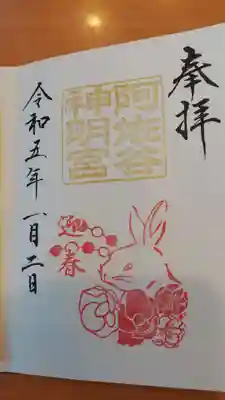 奉拝
阿佐ヶ谷
神明宮
迎春
令和五年一月二日